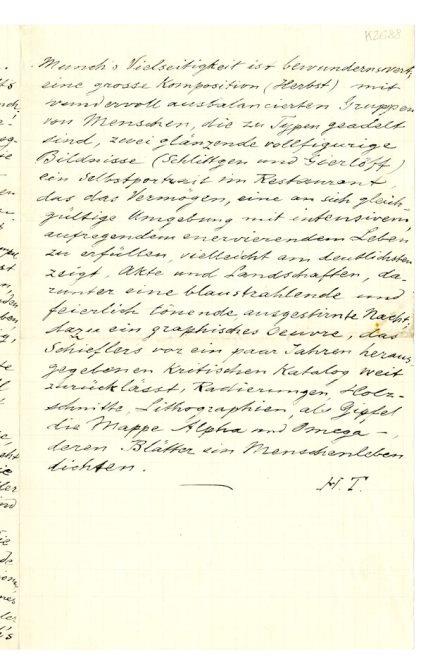 K2688
Munch's Vielseitigkeit ist bewundernswert,
eine grosse Komposition (Herbst) mit
wundervoll ausbalancierten Gruppen
von Menschen, die zu Typen geadelt
sind, zwei glänzende vollfigurige
Bildnisse (Schlittgen und Gierlöff)
ein Selbstportrait im Restaurant
das das Vermögen, eine an sich gleich-
gültige Umgebung mit intensivem,
aufregendem enervierendem Leben
zu erfüllen, vielleicht am deutlichsten
zeigt, Akte und Landschaften, da-
runter eine blaustrahlende und
feierlich tönende ausgestirnte Nacht,
dazu ein graphisches Oeuvre, das
Schieflers vor ein paar Jahren heraus-
gegebenen kritischen Katalog weit
zurücklässt, Radierungen, Holz-
schnitte, Lithographien, als Gipfel
die Mappe Alpha und Omega –,
deren Blätter ein Menschenleben
dichten.
H. T.